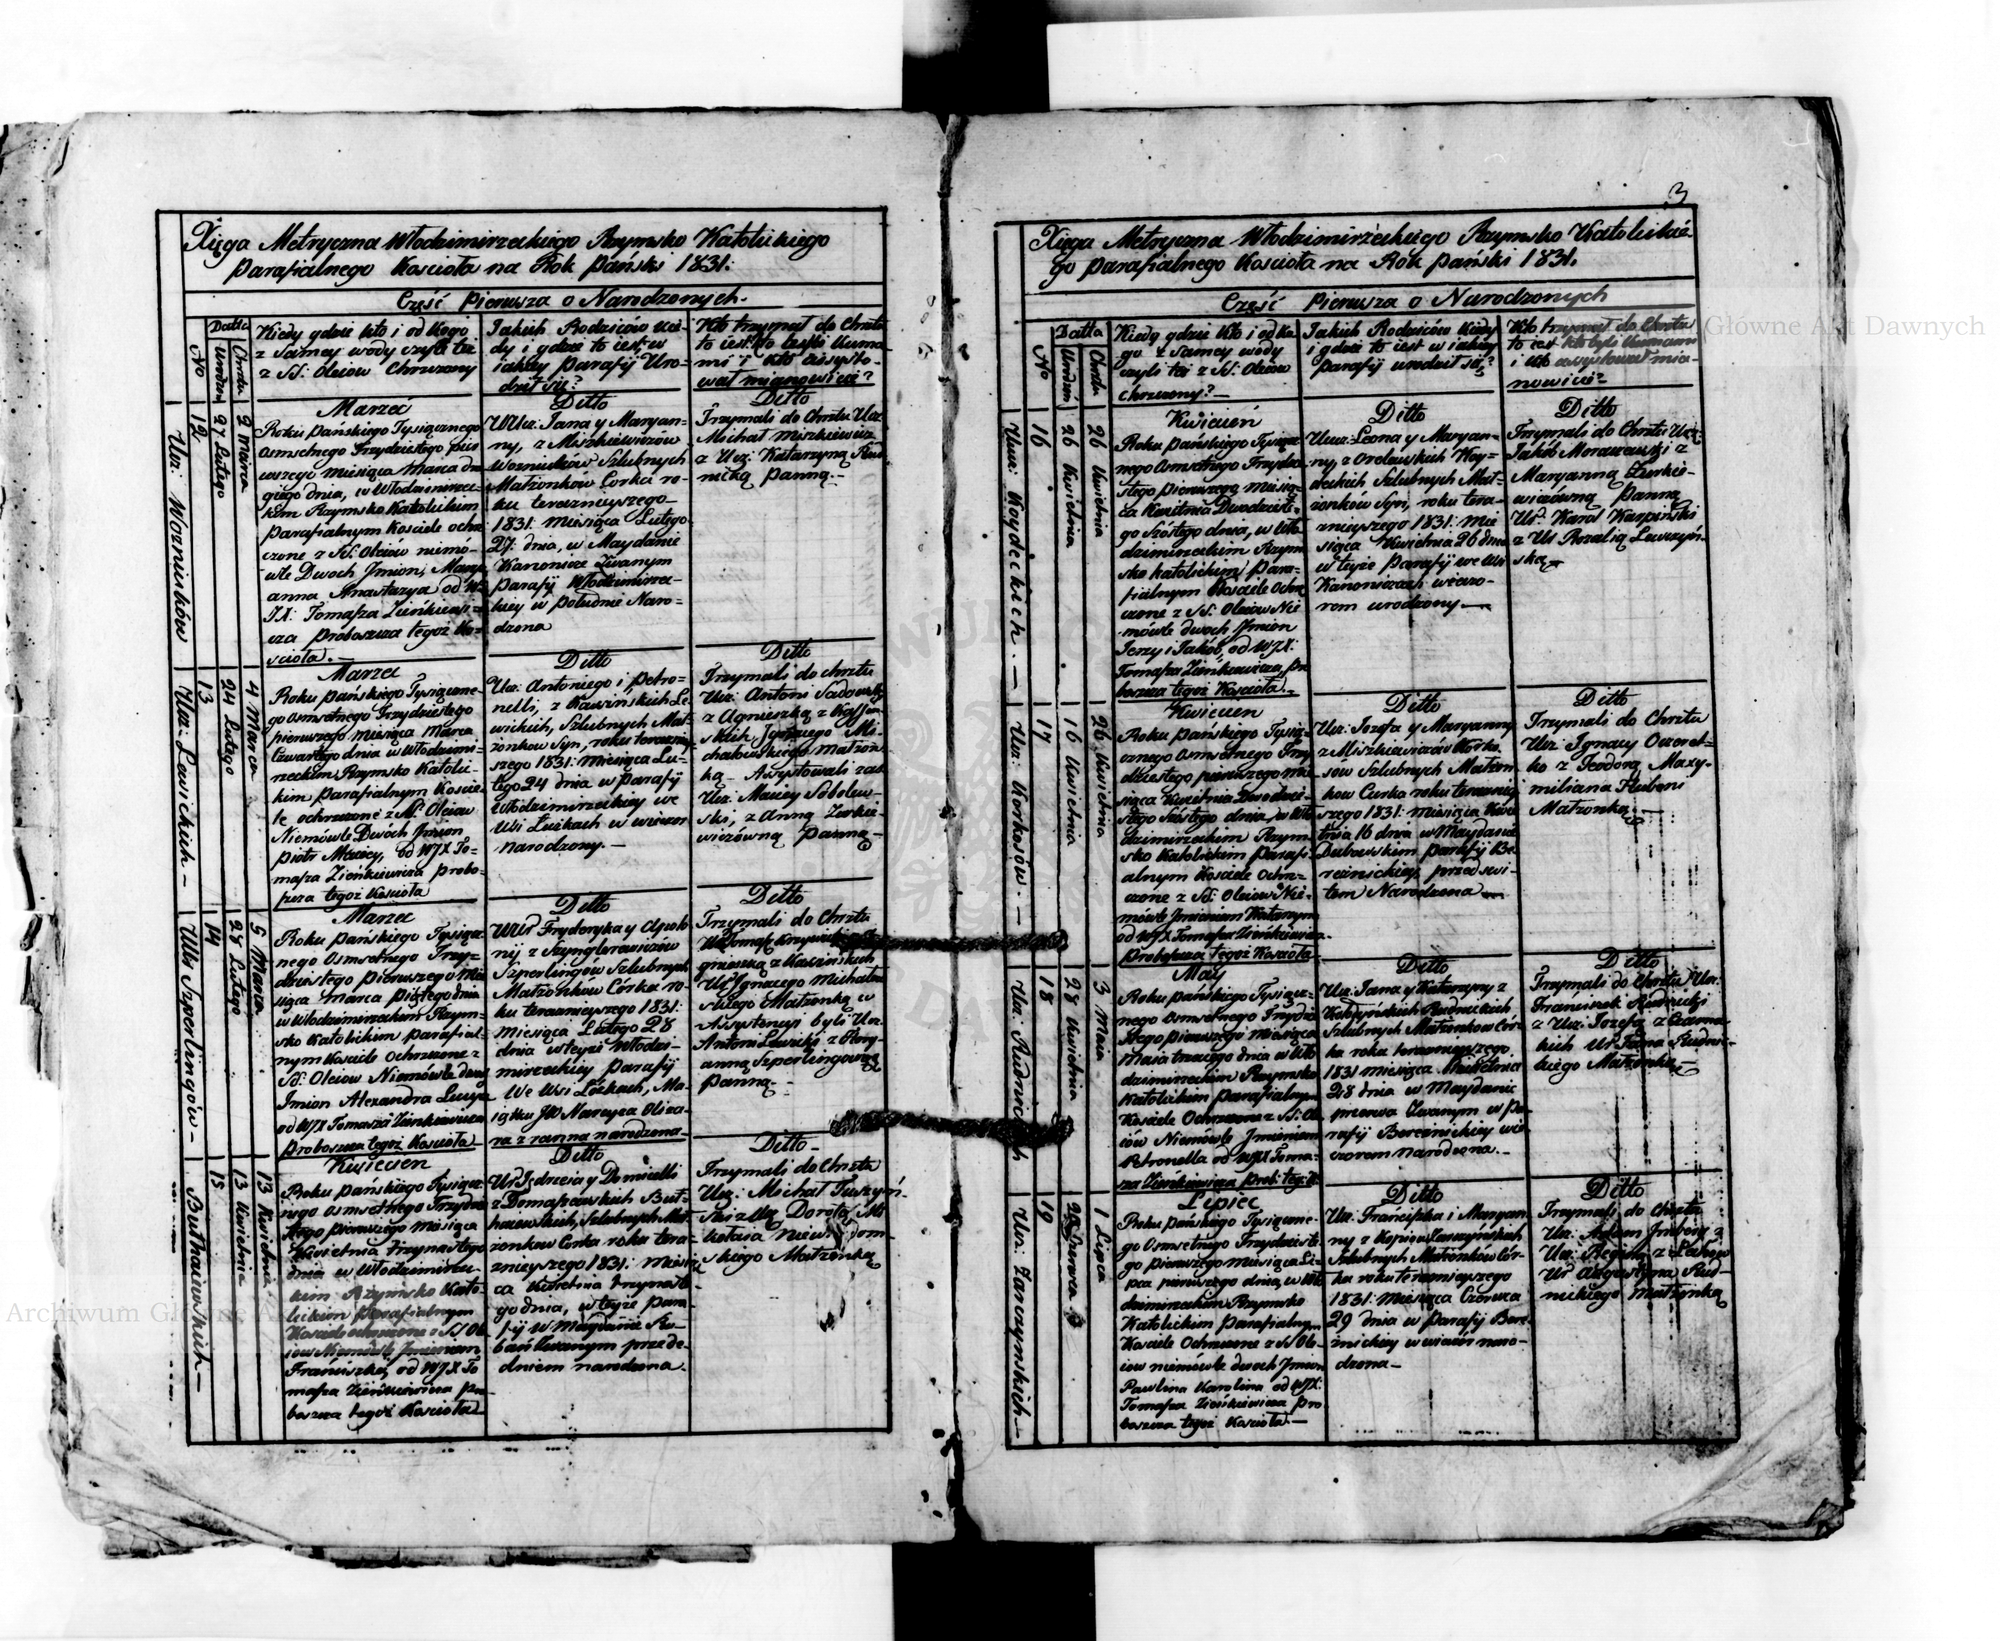 3
Xięga Metryczna Włodzimirzeckiego Rzymsko Katolickiego
parafialnego Koscioła na Rok Pański 1831.
Część Pierwsza o Narodzonych.
No
Datta
Urodzin
Chrztu
Kiedy gdzie kto i od kogo
z Samey wody czyli też
z SS. Oleiow Chrzczony
Jakich Rodziców kie-
dy i gdzie to iest w
iakiey parafij Uro-
dził się?
Kto trzymał do Chrztu
to iest kto byli Kuma-
mi i kto assysto-
wał mianowicie?
12
27 Lutego
2 Marca
Urz: Wozniuków
Marzec
Roku Pańskiego Tysiącznego
Osmsetnego Trzydziestego pier
wszego miesiąca Marca dru
giego dnia, w Włodzimirzec-
kim Rzymsko Katolickim
Parafialnym Kosciele ochrz
czone z SS. Oleiów niemó-
wle Dwoch Jmion, Mary
anna Anastazya od W
JX: Tomasza Zieńkiewi-
cza Proboszcza tegoż Ko-
scioła.—
Ditto
WUrz: Jana y Maryan-
ny, z Miszkiewiczów
Wozniuków Szlubnych
Małżonkow Corka ro-
ku teraznieyszego
1831. Miesiąca Lutego
27. dnia, w Maydanie
Kanonicze Zwanym
parafij Włodzimirzec-
kiey w południe Naro-
dzona
Ditto
Trzymali do Chrztu Urz.
Michał Miszkiewicz
z Urz: Katarzyną Rud
nicką Panną.—
13
24 Lutego
4 Marca
Urz: Lewickich —
Marzec
Roku Pańskiego Tysiączne-
go Osmsetnego Trzydziestego
pierwszego miesiąca Marca
Czwartego dnia w Włodzimi-
rzeckim Rzymsko Katolic-
kim parafialnym Koscie-
le ochrzczone z SS. Oleiow
Niemówle Dwóch Jmion
Piotr Maciey, od WJX To-
masza Zieńkiewicza probo-
szcza tegoż Kościoła
Ditto
Urz: Antoniego i Petro-
nelli, z Rawińskich Le
wickich, Szlubnych Mał-
żonkow Syn, roku terazniey
szego 1831. Miesiąca Lu-
tego 24 dnia w Parafij
Włodzimirzeckiey we
Wsi Luzkach w wieczor
narodzony.—
Ditto
Trzymali do chrztu
Urz: Antoni Sadowski
z Agnieszką z
skich, Ignacego Mi-
chałowskiego Małżon-
ką — Assystowali zaś
Urz: Maciey Sobolew-
ski, z Anną Zienkie-
wiczówną Panną —
14
28 Lutego
5 Marca
UUr Szperlingów —
Marzec
Roku Pańskiego Tysiącz
nego Osmsetnego Trzy-
dziestego pierwszego Mie
siąca Marca Piątego dnia
w Włodzimirzeckim Rzym-
sko Katolickim parafial-
nym Kosciele Ochrzczone z
SS. Oleiow Niemówle dwoy
Jmion Alexandra Lucya
od WJX Tomasza Zieńkiewicza
Proboszcza tegoż Kosciola
Ditto
WUr Fryderyka y Apolo
nij z Szynglerowiczów
Szperlingów Szlubnych
Małżonkow Córka ro-
ku teraznieyszego 1831.
Miesiąca Lutego 28
dnia w teyże Włodzi-
mirzeckiey Parafij
We Wsi Lózkach, Ma-
iątku JW Narcyza Oliza-
ra z ranna narodzona
Ditto
Trzymali do Chrztu
gnieszką z
Ur Ignacego Michałow
skiego Małżonką w
Assystencyi byli Urz.
Antoni Lewicki z Mary-
anną Szperlingową
Panną.—
15
13 Kwietnia
13 Kwietnia
Buthaewskich —
Kwiecien
Roku Pańskiego Tysiącz
nego Osmsetnego Trzydzie
stego pierwszego miesiąca
Kwietnia Trzynastego
dnia w Włodzimirzec-
kim Rzymsko Kato-
lickim parafialnym
Kosciele ochrzczone z SS Ole
iow Niemówle Jmieniem
Franciszka, od WJX To-
masza Zieńkiewicza Pro
boszcza tegoż Kościoła
Ditto
Ur Jędrzeia y Domicelli
z Tomaszewskich But-
haewskich, Szlubnych Mał
żonkow Corka roku tera-
znieyszego 1831. Miesią
ca Kwietnia trzynaste
go dnia, w teyże Para-
fij w Maydanie Ru-
bań Zwanym przede-
dniem narodzona.
Ditto
Trzymali do Chrztu
Urz: Michał Tuszyń-
ski z Urz Dorotą Mi
kołaia Niew dom-
skiego Małżonką
Xięga Metryczna Włodzimirzeckiego Rzymsko Katolickie-
go parafialnego Kosciola na Rok Pański 1831.
Część Pierwsza o Narodzonych
No
Datta
Urodzin
Chrztu
Kiedy gdzie Kto i od ko
go z Samey wody
czyli też z SS. Oleiów
chrzczony?—
Jakich Rodziców Kiedy
i gdzie to iest w iakiey
parafij urodził się?
Kto trzymał do Chrztu
to iest kto byli Kumami
i kto assystował mia-
nowicie?
16
26 Kwietnia
26 Kwietnia
Uwr: Woydeckich. —
Kwiecień
Roku Pańskiego Tysiącz
nego Osmsetnego Trzydzie
stego pierwszego Miesią-
ca Kwietnia Dwudzieste-
go Szóstego dnia, w Wło
dzimirzeckim Rzym-
sko Katolickim Para-
fialnym Kosciele Ochrz
czone z SS. Oleiow Nie
mówle dwoch Jmion
Jerzy i Jakób, od WJX:
Tomasza Zieńkiewicza, Pro
boszcza tegoż Kosciola.—
Ditto
Uwr: Leona y Maryan-
ny, z Orelewskich Woy-
deckich Szlubnych Mał-
żonków Syn, roku tera-
znieyszego 1831. Mie
siąca Kwietnia 26 dnia
w teyże Parafij we Wsi
Kanoniczach wieczo-
rem urodzony —
Ditto
Trzymali do Chrztu Urz:
Jakób Moraczewski z
Maryanną Zienkie-
wiczówną Panną
Ur. Karol Karpiński
z Ur Rozalią Lawryń-
ską —
17
16 Kwietnia
26 Kwietnia
Urz: Korkosów. —
Kwiecien
Roku Pańskiego Tysią-
cznego Osmsetnego Trzy
dziestego pierwszego mie
siąca Kwietnia Dwudzie-
stego Szóstego dnia, w Wło
dzimirzeckim Rzym-
sko Katolickim Parafi-
alnym Kosciele Ochrz-
czone z SS. Oleiow Nie-
mówle Jmieniem Katarzyna
od WJX Tomasza Zieńkiewicza
Proboszcza Tegoż Kosciola
Ditto
Urz: Jozefa y Maryanny
z Miszkiewiczów Korko
sow Szlubnych Małżon
kow Curka roku terazniey
szego 1831. Miesiąca Kwie
tnia 16 dnia w Maydanie
Dubowskim parafij Be-
reznickiey, przed swi-
tem Narodzona —
Ditto
Trzymali do Chrztu
Urz: Ignacy Oczeret-
ko z Teodorą Maxy-
miliana Huboni
Małżonką —
18
28 Kwietnia
3 Maia
Urz: Rudnickich
May
Roku Pańskiego Tysiącz-
nego Osmsetnego Trzydzie
stego pierwszego miesiąca
Maia trzeciego dnia w Wło
dzimirzeckim Rzymsko
Katolickim parafialnym
Kosciele Ochrzczone z SS: Ole
iów Niemówle Jmieniem
Petronella od WJX Toma-
sza Zieńkiewicza Prob: teg: K:
Ditto
Urz: Jana y Katarzyny z
Rudnickich
Szlubnych Małżonkow Cór-
ka roku teraznieyszego
1831 miesiąca Kwietnia
28 dnia w Maydanie
przerwa Zwanym w Pa-
rafij Bereznickiey wie
czorem narodzona.—
Ditto
Trzymali do Chrztu Urz:
Franciszek Rudnicki
z Urz: Jozefą z Czarnec
kich Ur Jana Rudnic-
kiego Małżonką —
19
29 Czerwca
1 Lipca
Urz: Zarczynskich —
Lipiec
Roku Pańskiego Tysiączne-
go Osmsetnego Trzydzieste-
go pierwszego miesiąca Li-
pca pierwszego dnia, w Wło
dzimirzeckim Rzymsko
Katolickim parafialnym
Kosciele Ochrzczone z SS Ole-
iow niemówle dwoch Jmion
Paulina Karolina od WJX:
Tomasza Zieńkiewicza Pro
boszcza tegoż Kosciola.—
Ditto
Urz: Franciszka i Maryan
ny z Kopciow Zarczyńskich
Szlubnych Małżonkow Cór-
ka roku teraznieyszego
1831. Miesiąca Czerwca
29 dnia w Parafij Bere-
znickiey w wieczór naro-
dzona —
Ditto
Trzymali do chrztu
Urz. Adam z
Urz: Reginą z
Ur Augustyna Rud-
nickiego Małżonką
Archiwum Główne Akt Dawnych
Główne Akt Dawnych